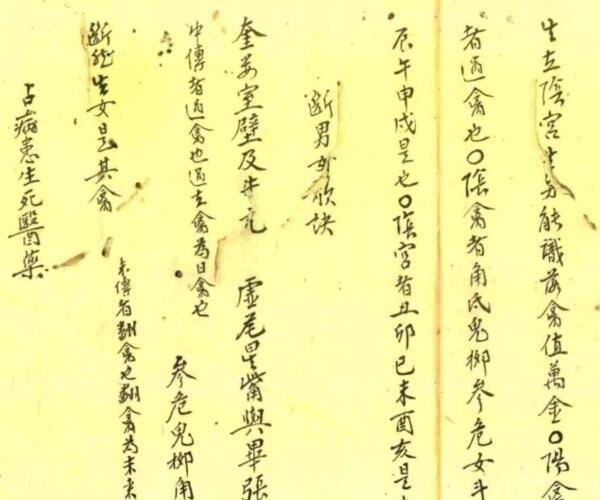 生在陰宮生男能識此禽值萬金〇陽禽
者過禽也〇陰禽者角氐鬼柳參危女斗
辰午申戌是也〇陰宮者丑卯巳未酉亥是
斷男女歌訣
奎婁室壁及牛亢 虛尾星觜與畢張
中傳者過禽也過去禽為日禽也 參危鬼柳角
斷然生女是其禽 末傳者翻禽也翻禽為未來
占病患生死醫藥